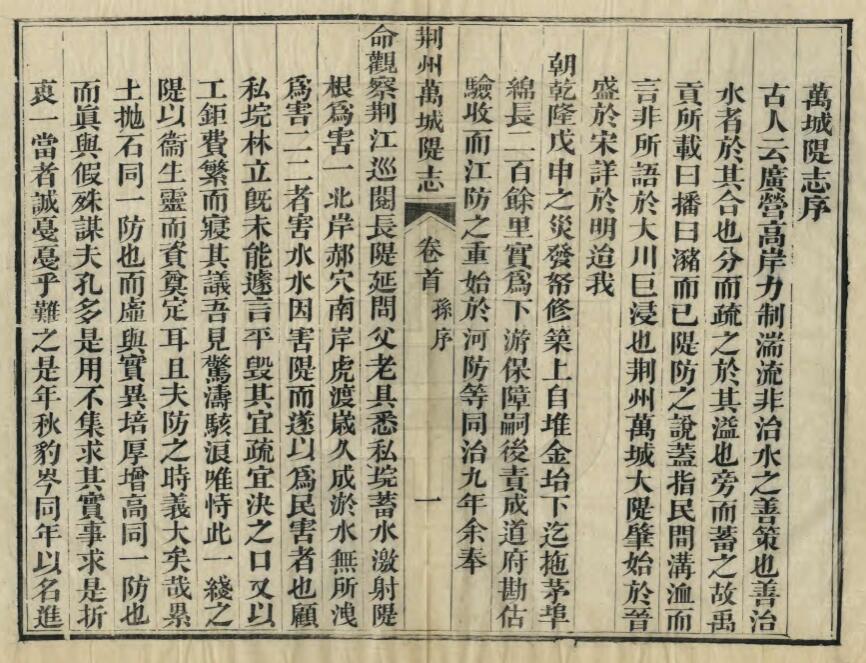 萬城隄志序
古人云廣營高岸力制湍流非治水之善策也善治
水者於其合也分而疏之於其溢也旁而蓄之故禹
貢所載曰播曰瀦而已隄防之說蓋指民間溝洫而
言非所語於大川巨浸也荆州萬城大隄肇始於晉
盛於宋詳於明迨我
朝乾隆戊申之災發帑修築上自堆金垱下迄拖茅埠
綿長二百餘里實爲下游保障嗣後責成道府勘估
驗收而江防之重始於河防等同治九年余奉
荆州萬城隄志 卷首 孫序 一
命觀察荆江巡閱長隄延問父老具悉私垸蓄水激射隄
根爲害一北岸郝穴南岸虎渡歲久成淤水無所洩
爲害二二者害水水因害隄而遂以爲民害者也顧
私垸林立旣未能遽言平毁其宜疏宜決之口又以
工鉅費繁而寢其議吾見驚濤駭浪唯恃此一綫之
隄以衞生靈而資奠定耳且夫防之時義大矣哉累
土抛石同一防也而虛與實異培厚增高同一防也
而眞與假殊謀夫孔多是用不集求其實事求是折
衷一當者誠戞戞乎難之是年秋豹岑同年以名進